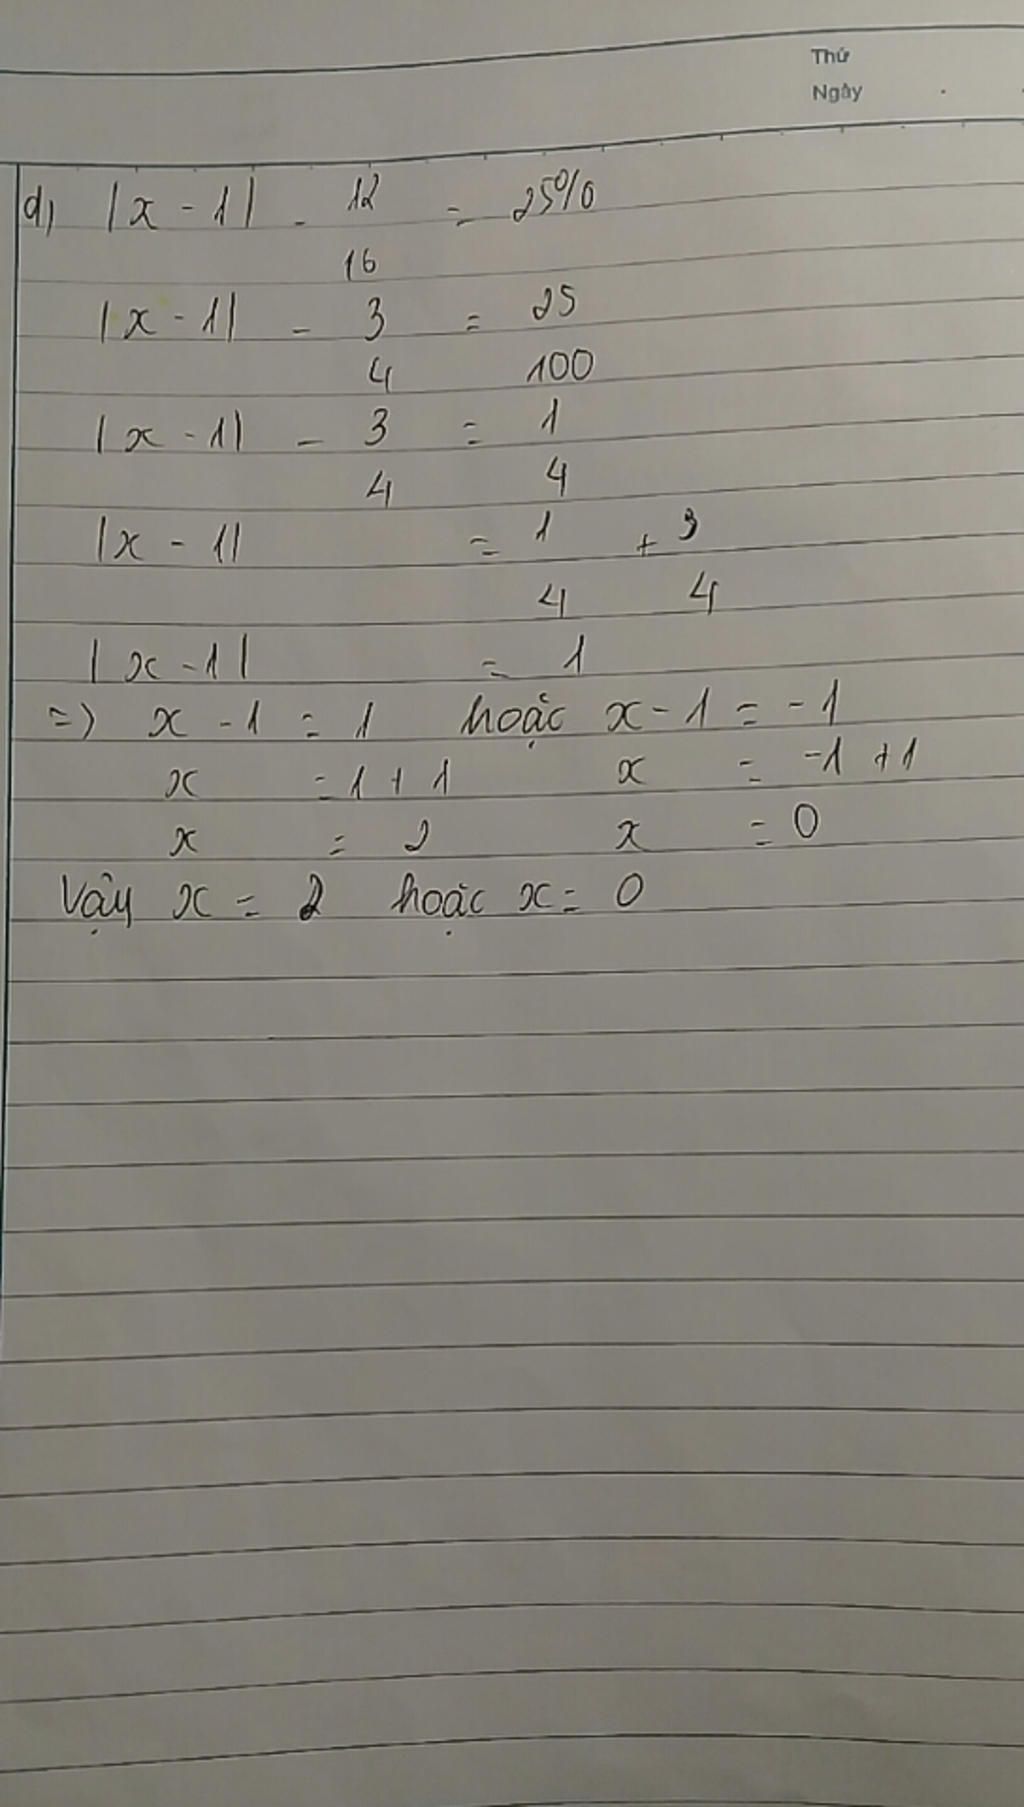 Thứ
Ngày
d) |x - 1| - 12/16 = 25%
|x - 1| - 3/4 = 25/100
|x - 1| - 3/4 = 1/4
|x - 1| = 1/4 + 3/4
|x - 1| = 1
=> x - 1 = 1 hoặc x - 1 = -1
x = 1 + 1 x = -1 + 1
x = 2 x = 0
Vậy x = 2 hoặc x = 0